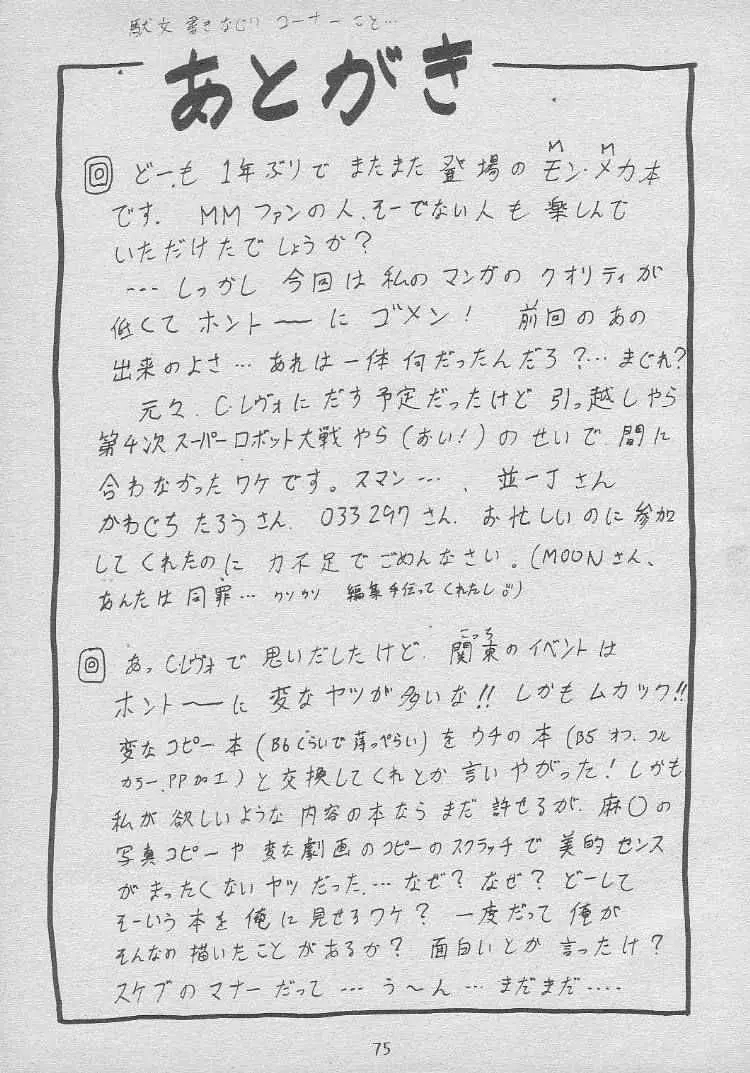 駄文書きなぐりコーナーこと…
あとがき
◎ どーも 1年ぶりで またまた 登場の モン・メカ本
M M
です. MMファンの人、そーでない人も 楽しんで
いただけたでしょうか?
… しっかし 今回は 私のマンガの クオリティが
低くて ホントーーに ゴメン! 前回のあの
出来のよさ… あれは一体 何だったんだろ?… まぐれ?
元々、C・レヴォに だす予定だったけど 引っ越しやら
第4次スーパーロボット大戦やら(おい!)のせいで、間に
合わなかったワケです。スマン…、 並一丁さん
かわぐちたろうさん、033297さん、お忙しいのに参加
してくれたのに 力不足でごめんなさい。(MOONさん、
あんたは 同罪… クソクソ 編集手伝ってくれたし。)
◎ あっ C・レヴォで 思いだしたけど、関東のイベントは
こっち
ホントーーに 変なヤツが多いな!! しかもムカツク!!
変なコピー本(B6くらいで薄っぺらい)を ウチの本(B5 オフ、フル
カラー、PP加工)と交換してくれとか 言いやがった! しかも
私が 欲しいような 内容の本なら まだ 許せるが、麻○の
写真コピーや 変な劇画のコピーのスクラッチで 美的センス
がまったくないヤツだった…. なぜ? なぜ? どーして
そーいう本を 俺に見せるワケ? 一度だって 俺が
そんなの 描いたことがあるか? 面白いとか 言ったけ?
スケブのマナーだって … う〜ん … まだまだ ‥‥
75